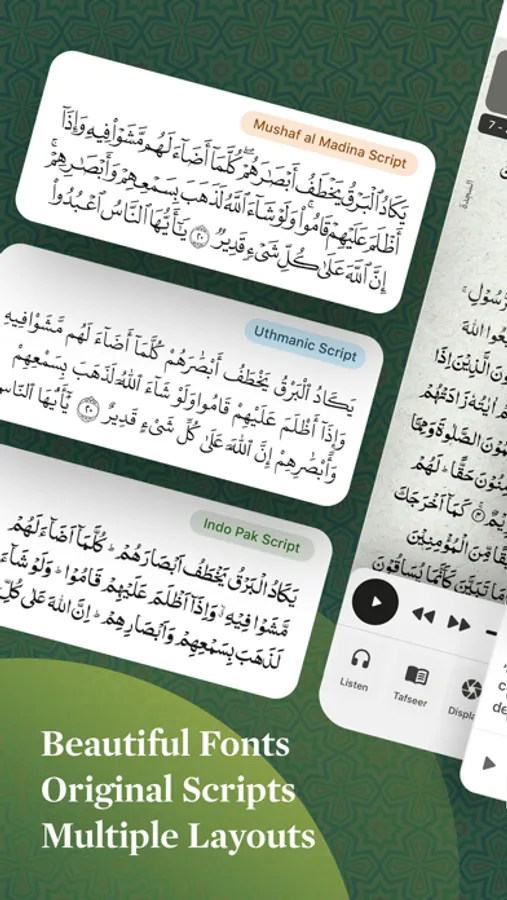 Mushaf al Madina Script
يَكَادُ الْبَرْقُ يَخْطَفُ أَبْصَٰرَهُمْ ۖ كُلَّمَآ أَضَآءَ لَهُم مَّشَوْا۟ فِيهِ وَإِذَآ
أَظْلَمَ عَلَيْهِمْ قَامُوا۟ ۚ وَلَوْ شَآءَ ٱللَّهُ لَذَهَبَ بِسَمْعِهِمْ وَأَبْصَٰرِهِمْ ۚ
إِنَّ ٱللَّهَ عَلَىٰ كُلِّ شَىْءٍ قَدِيرٌ ٢٠ يَٰٓأَيُّهَا ٱلنَّاسُ ٱعْبُدُوا۟
Uthmanic Script
يَكَادُ الْبَرْقُ يَخْطَفُ أَبْصَٰرَهُمْ كُلَّمَآ أَضَآءَ لَهُم مَّشَوْا۟ فِيهِ
وَإِذَآ أَظْلَمَ عَلَيْهِمْ قَامُوا۟ وَلَوْ شَآءَ ٱللَّهُ لَذَهَبَ بِسَمْعِهِمْ
وَأَبْصَٰرِهِمْ إِنَّ ٱللَّهَ عَلَىٰ كُلِّ شَىْءٍ قَدِيرٌ ٢٠ يَٰٓأَيُّهَا ٱلنَّاسُ
Indo Pak Script
يَكَادُ الْبَرْقُ يَخْطَفُ اَبْصَارَهُمْ ؕ كُلَّمَاۤ اَضَآءَ لَهُمْ
مَّشَوْا فِيْهِ ۙ وَاِذَاۤ اَظْلَمَ عَلَيْهِمْ قَامُوْا ؕ وَلَوْ شَآءَ
لَذَهَبَ بِسَمْعِهِمْ وَاَبْصَارِهِمْ ؕ اِنَّ اللّٰهَ عَلٰى كُلِّ
السجدة
7 -
رَسُوْلِ ۚ
اللّٰهَ
الَّذِيْنَ اِذَا
اٰيٰتُهٗ زَادَتْهُمْ
الصَّلٰوةَ وَمِمَّا
حَقًّا ؕ لَهُمْ
كَمَاۤ اَخْرَجَكَ
مِّنَ الْمُؤْمِنِيْنَ
مَا تَبَيَّنَ كَاَنَّمَا يُسَاقُوْنَ
Listen
Tafseer
Displa
Beautiful Fonts
Original Scripts
Multiple Layouts